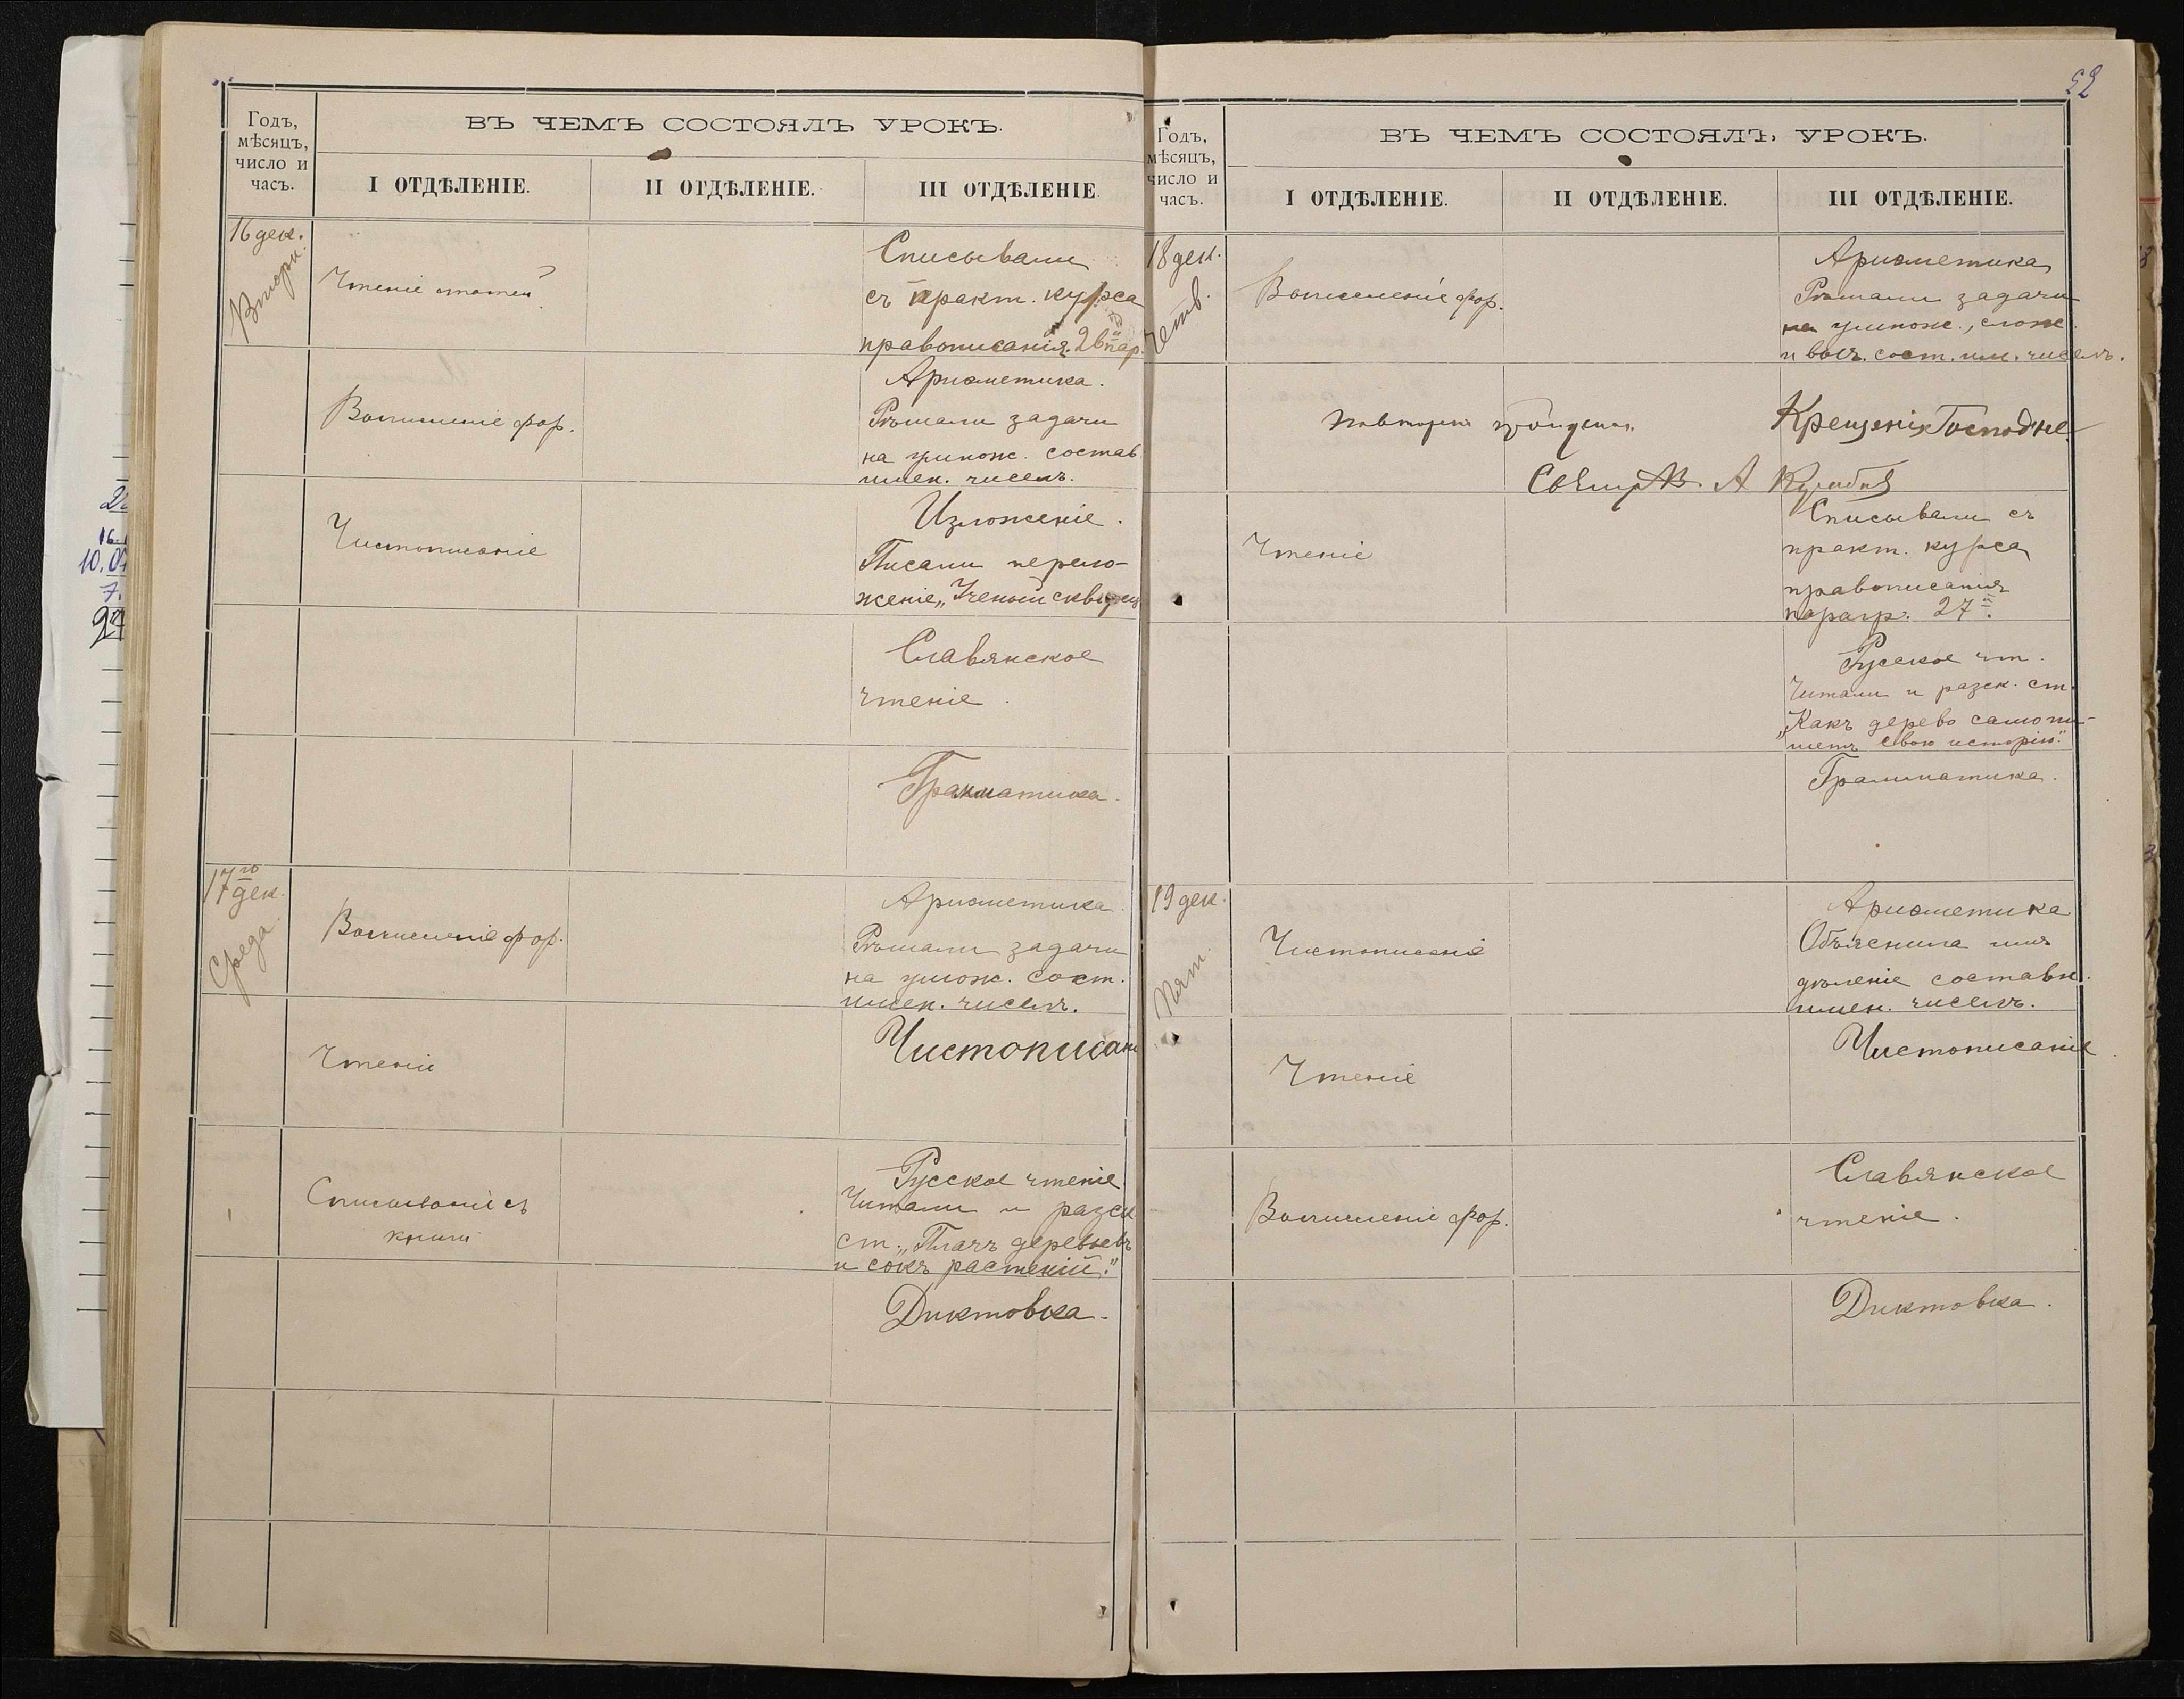 Годъ,
мѣсяцъ,
число и
часъ.
ВЪ ЧЕМЪ СОСТОЯЛЪ УРОКЪ.
I ОТДѢЛЕНІЕ.
II ОТДѢЛЕНІЕ.
III ОТДѢЛЕНІЕ.
16 дек.
Вторн.
Чтеніе статей
Списывали
съ практ. курса
правописанія 26й пар.
Вычисленіе фор.
Ариѳметика.
Рѣшали задачи
на умнож. состав.
имен. чиселъ.
Чистописаніе
Изложеніе.
Писали перело-
женіе „Ученый скворец
Славянское
чтеніе.
Грамматика.
17го дек.
Среда
Вычисленіе фор.
Ариѳметика
Рѣшали задачи
на умож. сост.
имен. чиселъ.
Чтеніе
Чистописані
Списываніе съ
книги
Русское чтеніе.
Читали и разск
ст. „Плачъ деревьевъ
и сокъ растеній."
Диктовка.
52
Годъ,
мѣсяцъ,
число и
часъ.
ВЪ ЧЕМЪ СОСТОЯЛЪ УРОКЪ.
I ОТДѢЛЕНІЕ.
II ОТДѢЛЕНІЕ.
III ОТДѢЛЕНІЕ.
18 дек.
Четв.
Вычисленіе фор.
Ариѳметика
Рѣшали задачи
на умнож., слож.
и выч. сост. им. чиселъ.
Крещеніе Господне
А
Чтеніе
Списывали съ
практ. курса
правописанія
парагр. 27й.
Русское чт.
Читали и разск. ст.
„Какъ дерево само пи-
шетъ свою исторію."
Грамматика.
19 дек.
Пят.
Чистописаніе
Ариѳметика
Объяснила имъ
дѣленіе составн.
имен. чиселъ.
Чтеніе
Чистописаніе
Вычисленіе фор.
Славянское
чтеніе.
Диктовка.